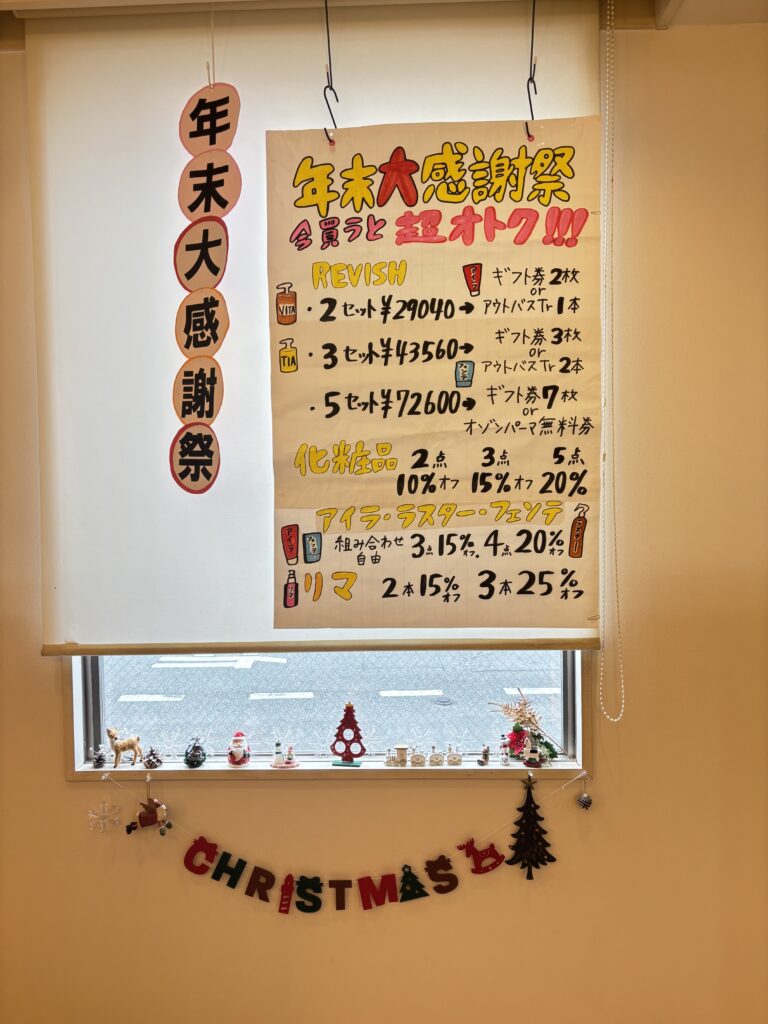 年末大感謝祭
年末大感謝祭
今買うと 超オトク!!!
REVISH
VITA
・2セット¥29040→
アイラ
ギフト券2枚
or
アウトバスTr1本
TIA
・3セット¥43560→
ギフト券3枚
or
アウトバスTr2本
フェンテ
・5セット¥72600→
ギフト券7枚
or
オゾンパーマ無料券
化粧品 2点 3点 5点
10%オフ 15%オフ 20%
アイラ・ラスター・フェンテ
アイラ
フェンテ
組み合わせ自由 3点15%オフ、4点20%オフ
ラスター
リマ
リマ 2本15%オフ 3本25%オフ
CHRISTMAS